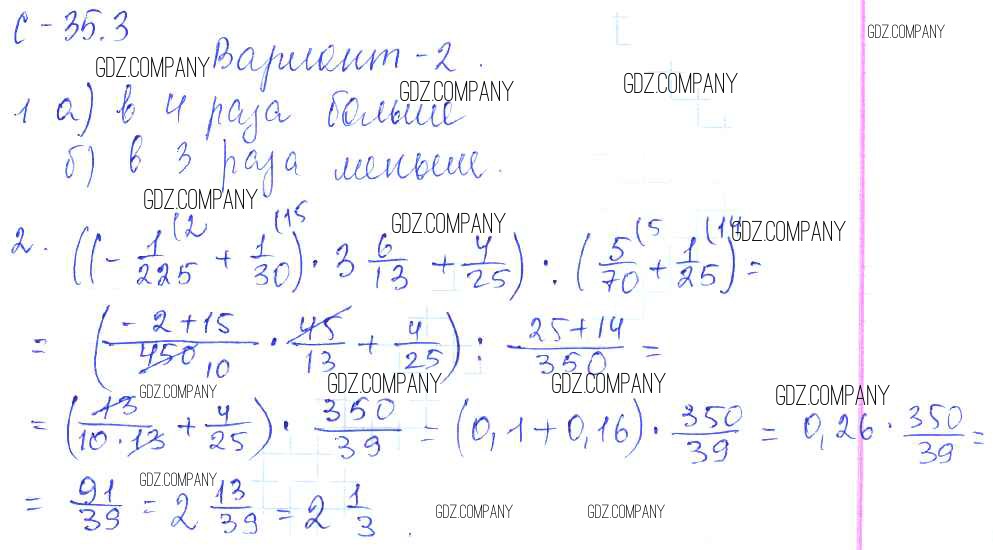 С-35.3
Вариант-2.
1 а) в 4 раза больше
б) в 3 раза меньше.
2. ((-1/225 (2 + 1/30 (15) · 3 6/13 + 4/25) : (5/70 (5 + 1/25 (14) =
= ((-2+15)/450 10 · 45/13 + 4/25) : (25+14)/350 =
= (13/(10·13) + 4/25) · 350/39 = (0,1+0,16) · 350/39 = 0,26 · 350/39 =
= 91/39 = 2 13/39 = 2 1/3.
GDZ.COMPANY
GDZ.COMPANY
GDZ.COMPANY
GDZ.COMPANY
GDZ.COMPANY
GDZ.COMPANY
GDZ.COMPANY
GDZ.COMPANY
GDZ.COMPANY
GDZ.COMPANY
GDZ.COMPANY
GDZ.COMPANY
GDZ.COMPANY
GDZ.COMPANY